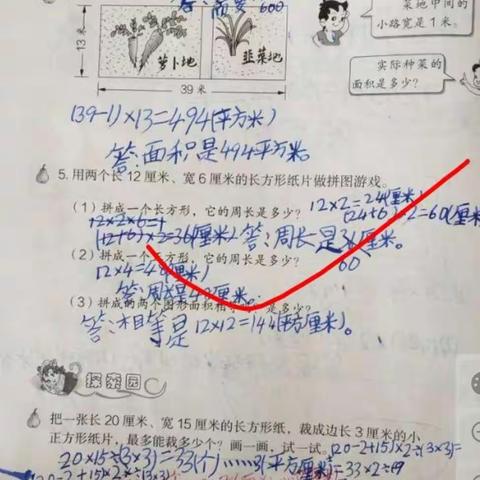 答:需要600
菜地中间的
小路宽是1米。
13米
萝卜地
韭菜地
39米
实际种菜的
面积是多少?
(39-1)×13=494(平方米)
答:面积是494平方米。
5. 用两个长12厘米、宽6厘米的长方形纸片做拼图游戏。
12×2=24(厘米)
(1) 拼成一个长方形,它的周长是多少?
(24+6)×2=60(厘米
12×2×6=1
(12+6)×2=36(厘米)
答:周长是36厘米。
60
(2) 拼成一个正方形,它的周长是多少?
12×4=48(厘米)
答:周长是48厘米。
(3) 拼成的两个图形面积相等吗?是多少?
答:相等是12×12=144(平方厘米)。
探索园
把一张长20厘米、宽15厘米的长方形纸,裁成边长3厘米的小
正方形纸片,最多能裁多少个?画一画,试一试。
(20-2+15)×2÷(3×3)=
20×15÷(3×3)=33(个)……3(平方厘米)
=33×2÷9